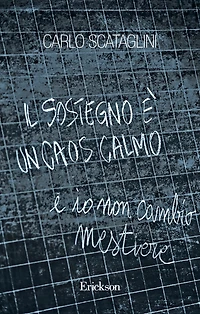 CARLO SCATAGLINI
IL SOSTEGNO È
UN CAOS CALMO
e io non cambio
mestiere
Erickson